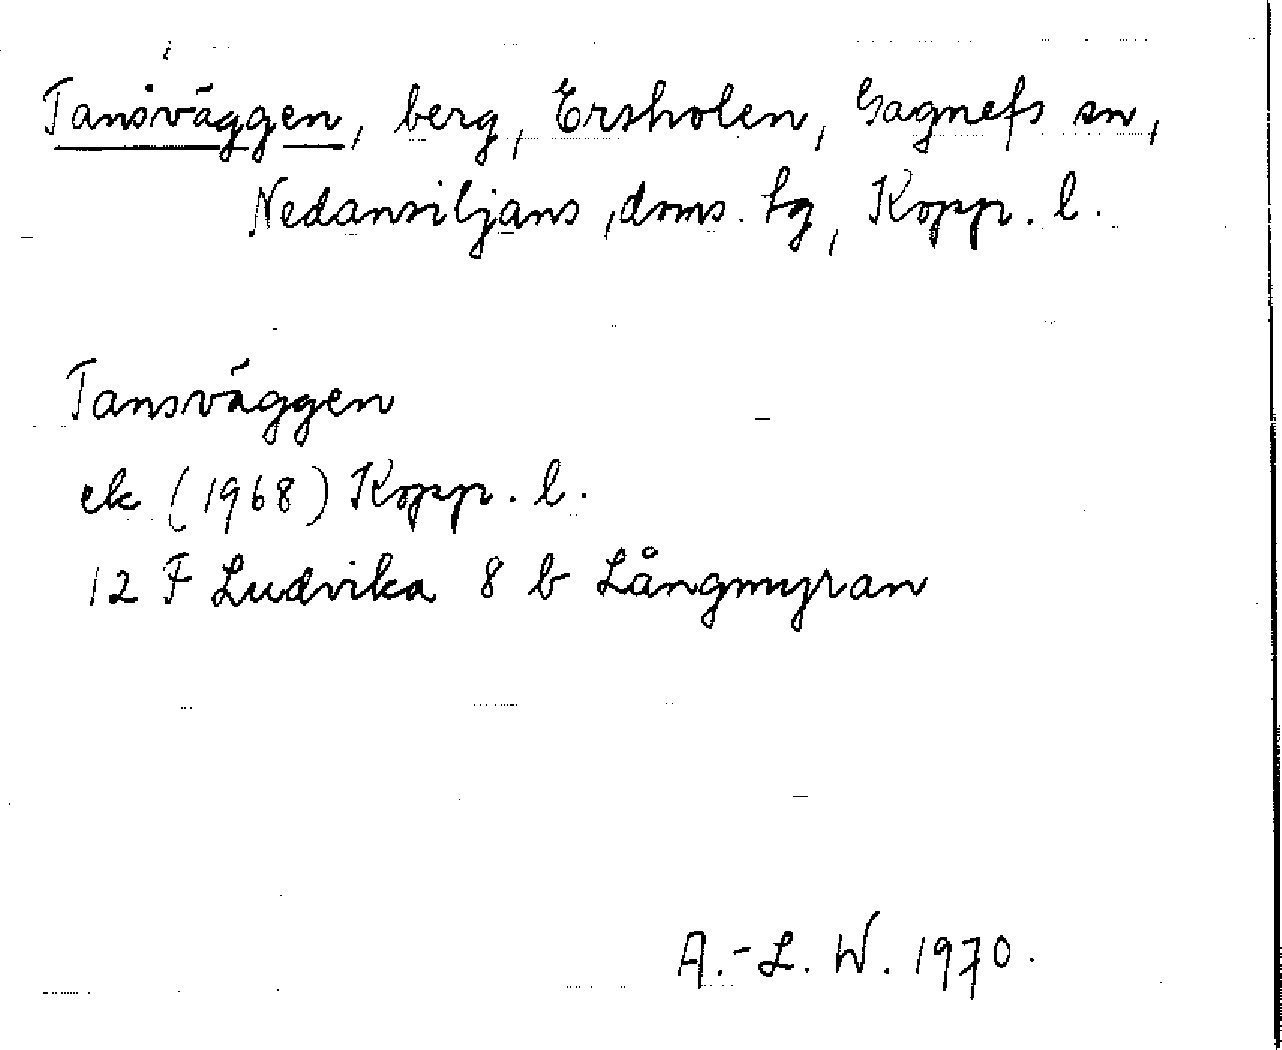 Tansväggen, berg, Ersholen, Gagnefs sn,
Nedansiljans, doms. tg, Kopp. l.
Tansväggen
ek (1968) Kopp. l.
12 F Ludvika 8 b Långmyran
A.-L. W. 1970.